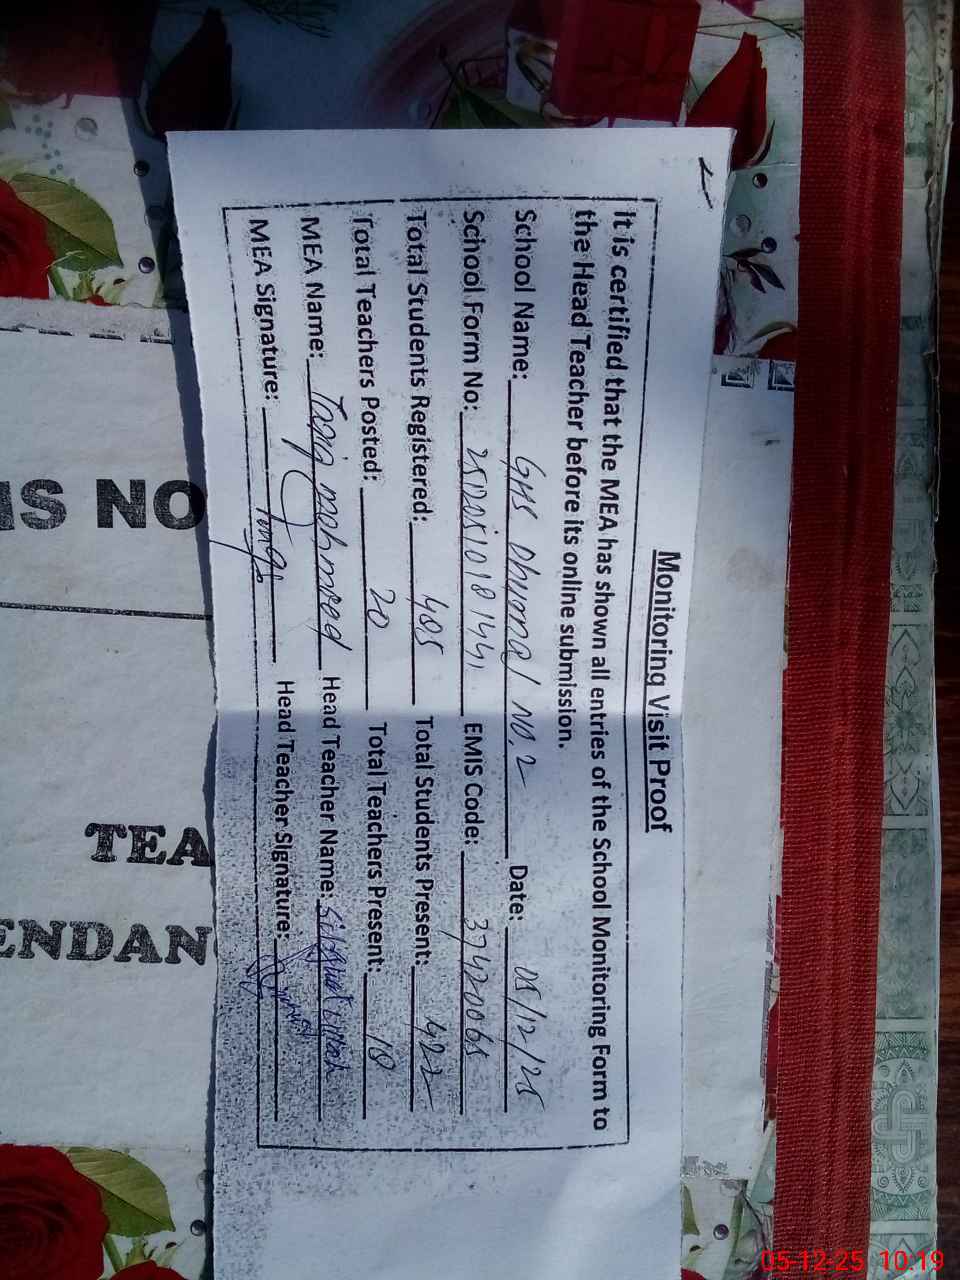 Monitoring Visit Proof
It is certified that the MEA has shown all entries of the School Monitoring Form to
the Head Teacher before its online submission.
School Name: GHS Dhurnal No. 2 Date: 05/12/25
School Form No: EMIS Code: 37420065
Total Students Registered: Total Students Present: 422
Total Teachers Posted: 20 Total Teachers Present: 18
MEA Name: Tariq mehmood Head Teacher Name:
MEA Signature: Head Teacher Signature:
IS NO
TEA
ENDAN
05-12-25 10:19